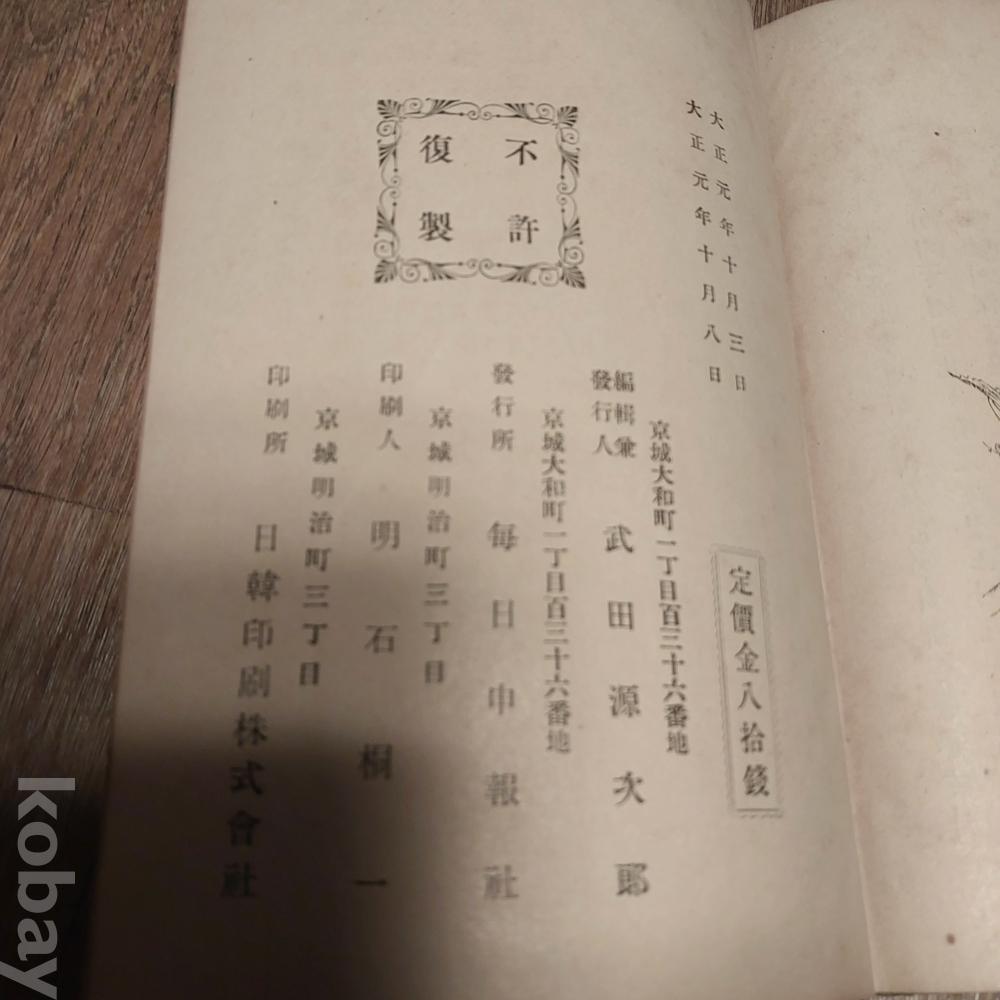 大正元年十月三日
大正元年十月八日
定價金八拾錢
不許
復製
京城大和町一丁目百三十六番地
編輯兼
發行人
武田源次郎
京城大和町一丁目百三十六番地
發行所
每日申報社
京城明治町三丁目
印刷人
明石桐一
京城明治町三丁目
印刷所
日韓印刷株式會社
kobay